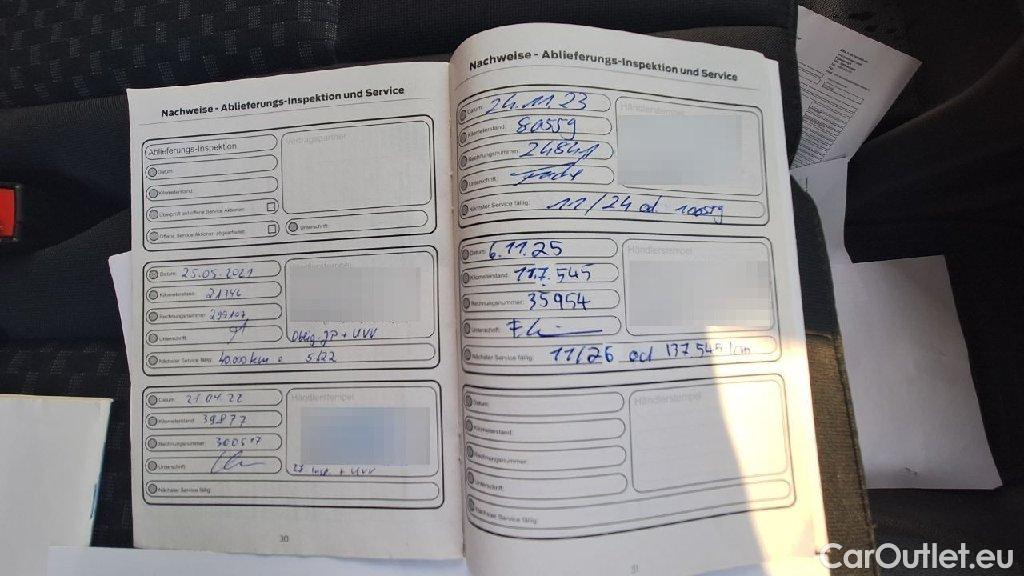 Nachweise - Ablieferungs-Inspektion und Service
Ablieferungs-Inspektion
Datum:
Kilometerstand:
Überprüft auf offene Service Aktionen:
Offene Service Aktionen abgearbeitet:
Vertragspartner
Unterschrift:
Datum: 25.05.2021
Kilometerstand: 21346
Rechnungsnummer: 299107
Unterschrift:
Händlerstempel
Oblig. JP + UVV
Nächster Service fällig: 40000km o 5/22
Datum: 21.04.22
Kilometerstand: 39877
Rechnungsnummer: 300517
Unterschrift:
Händlerstempel
Insp. + UVV
Nächster Service fällig:
30
Nachweise - Ablieferungs-Inspektion und Service
Datum: 24.11.23
Kilometerstand: 80559
Rechnungsnummer:
Unterschrift:
Händlerstempel
Nächster Service fällig: 11/24 od. 100559
Datum: 6.11.25
Kilometerstand: 117.545
Rechnungsnummer: 35954
Unterschrift:
Händlerstempel
Nächster Service fällig: 11/26 od 137545 km
Datum:
Kilometerstand:
Rechnungsnummer:
Unterschrift:
Händlerstempel
Nächster Service fällig:
31
CarOutlet.eu